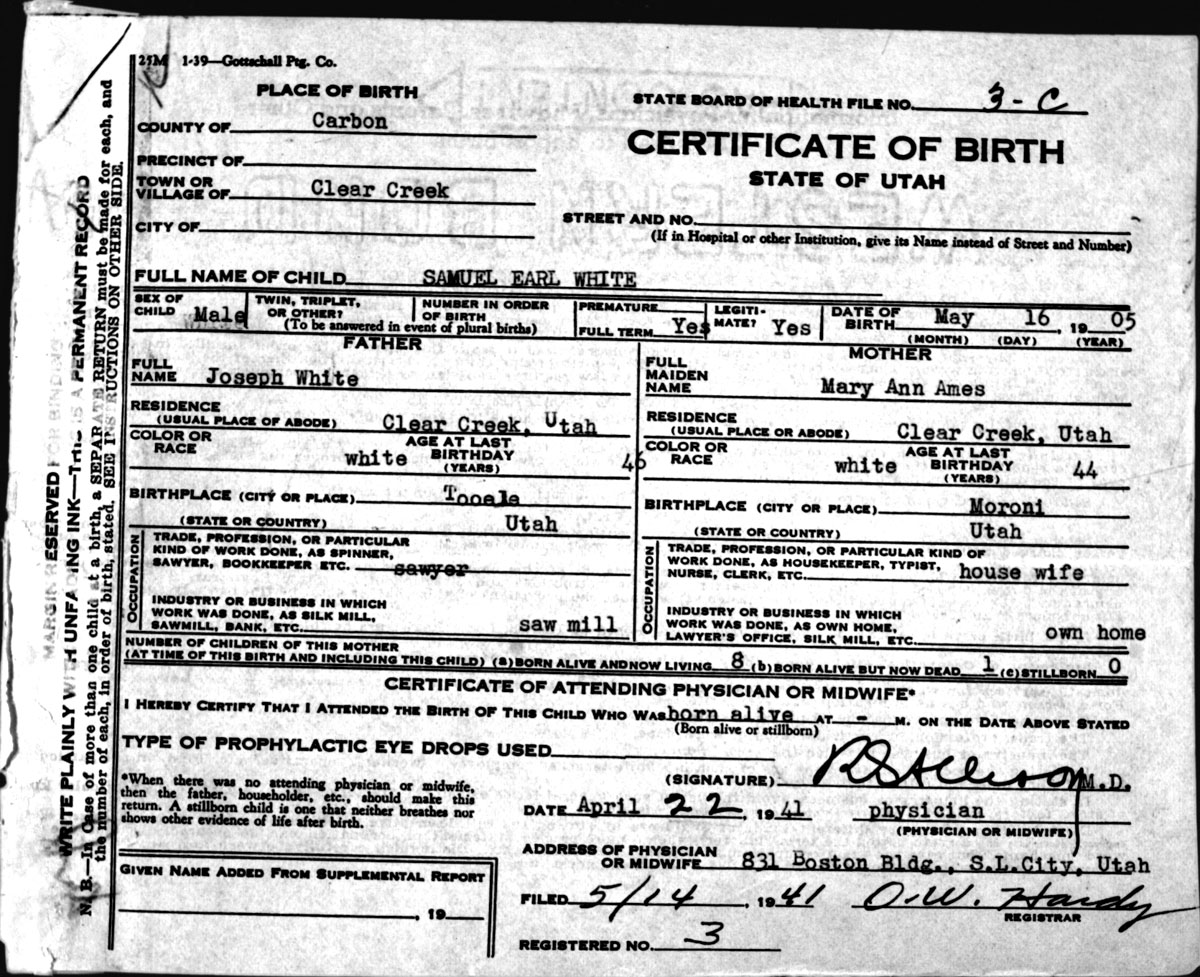 25M 1-39—Gottschall Ptg. Co.
PLACE OF BIRTH
STATE BOARD OF HEALTH FILE NO. 3-C
COUNTY OF Carbon
CERTIFICATE OF BIRTH
PRECINCT OF
STATE OF UTAH
TOWN OR
VILLAGE OF Clear Creek
CITY OF
STREET AND NO.
(If in Hospital or other Institution, give its Name instead of Street and Number)
FULL NAME OF CHILD SAMUEL EARL WHITE
SEX OF CHILD Male
TWIN, TRIPLET, OR OTHER?
NUMBER IN ORDER OF BIRTH
(To be answered in event of plural births)
PREMATURE
FULL TERM Yes
LEGITI-
MATE? Yes
DATE OF BIRTH May 16, 1905
(MONTH) (DAY) (YEAR)
FATHER
FULL NAME Joseph White
RESIDENCE
(USUAL PLACE OF ABODE) Clear Creek, Utah
COLOR OR RACE white
AGE AT LAST BIRTHDAY (YEARS) 46
BIRTHPLACE (CITY OR PLACE) Tooele
(STATE OR COUNTRY) Utah
OCCUPATION
TRADE, PROFESSION, OR PARTICULAR
KIND OF WORK DONE, AS SPINNER,
SAWYER, BOOKKEEPER ETC. sawyer
INDUSTRY OR BUSINESS IN WHICH
WORK WAS DONE, AS SILK MILL,
SAWMILL, BANK, ETC. saw mill
MOTHER
FULL MAIDEN NAME Mary Ann Ames
RESIDENCE
(USUAL PLACE OR ABODE) Clear Creek, Utah
COLOR OR RACE white
AGE AT LAST BIRTHDAY (YEARS) 44
BIRTHPLACE (CITY OR PLACE) Moroni
(STATE OR COUNTRY) Utah
OCCUPATION
TRADE, PROFESSION, OR PARTICULAR KIND OF
WORK DONE, AS HOUSEKEEPER, TYPIST,
NURSE, CLERK, ETC. house wife
INDUSTRY OR BUSINESS IN WHICH
WORK WAS DONE, AS OWN HOME,
LAWYER'S OFFICE, SILK MILL, ETC. own home
NUMBER OF CHILDREN OF THIS MOTHER
(AT TIME OF THIS BIRTH AND INCLUDING THIS CHILD) (a) BORN ALIVE AND NOW LIVING 8 (b) BORN ALIVE BUT NOW DEAD 1 (c) STILLBORN 0
CERTIFICATE OF ATTENDING PHYSICIAN OR MIDWIFE*
I HEREBY CERTIFY THAT I ATTENDED THE BIRTH OF THIS CHILD WHO WAS born alive AT - M. ON THE DATE ABOVE STATED
(Born alive or stillborn)
TYPE OF PROPHYLACTIC EYE DROPS USED
*When there was no attending physician or midwife,
then the father, householder, etc., should make this
return. A stillborn child is one that neither breathes nor
shows other evidence of life after birth.
(SIGNATURE) M.D.
DATE April 22, 1941 physician
(PHYSICIAN OR MIDWIFE)
ADDRESS OF PHYSICIAN
OR MIDWIFE 831 Boston Bldg., S.L.City, Utah
GIVEN NAME ADDED FROM SUPPLEMENTAL REPORT
, 19
FILED 5/14, 1941 O.W. Hardy
REGISTRAR
REGISTERED NO. 3
MARGIN RESERVED FOR BINDING
WRITE PLAINLY WITH UNFADING INK—THIS IS A PERMANENT RECORD
N. B.—In Case of more than one child at a birth, a SEPARATE RETURN must be made for each, and
the number of each, in order of birth, stated. SEE INSTRUCTIONS ON OTHER SIDE.